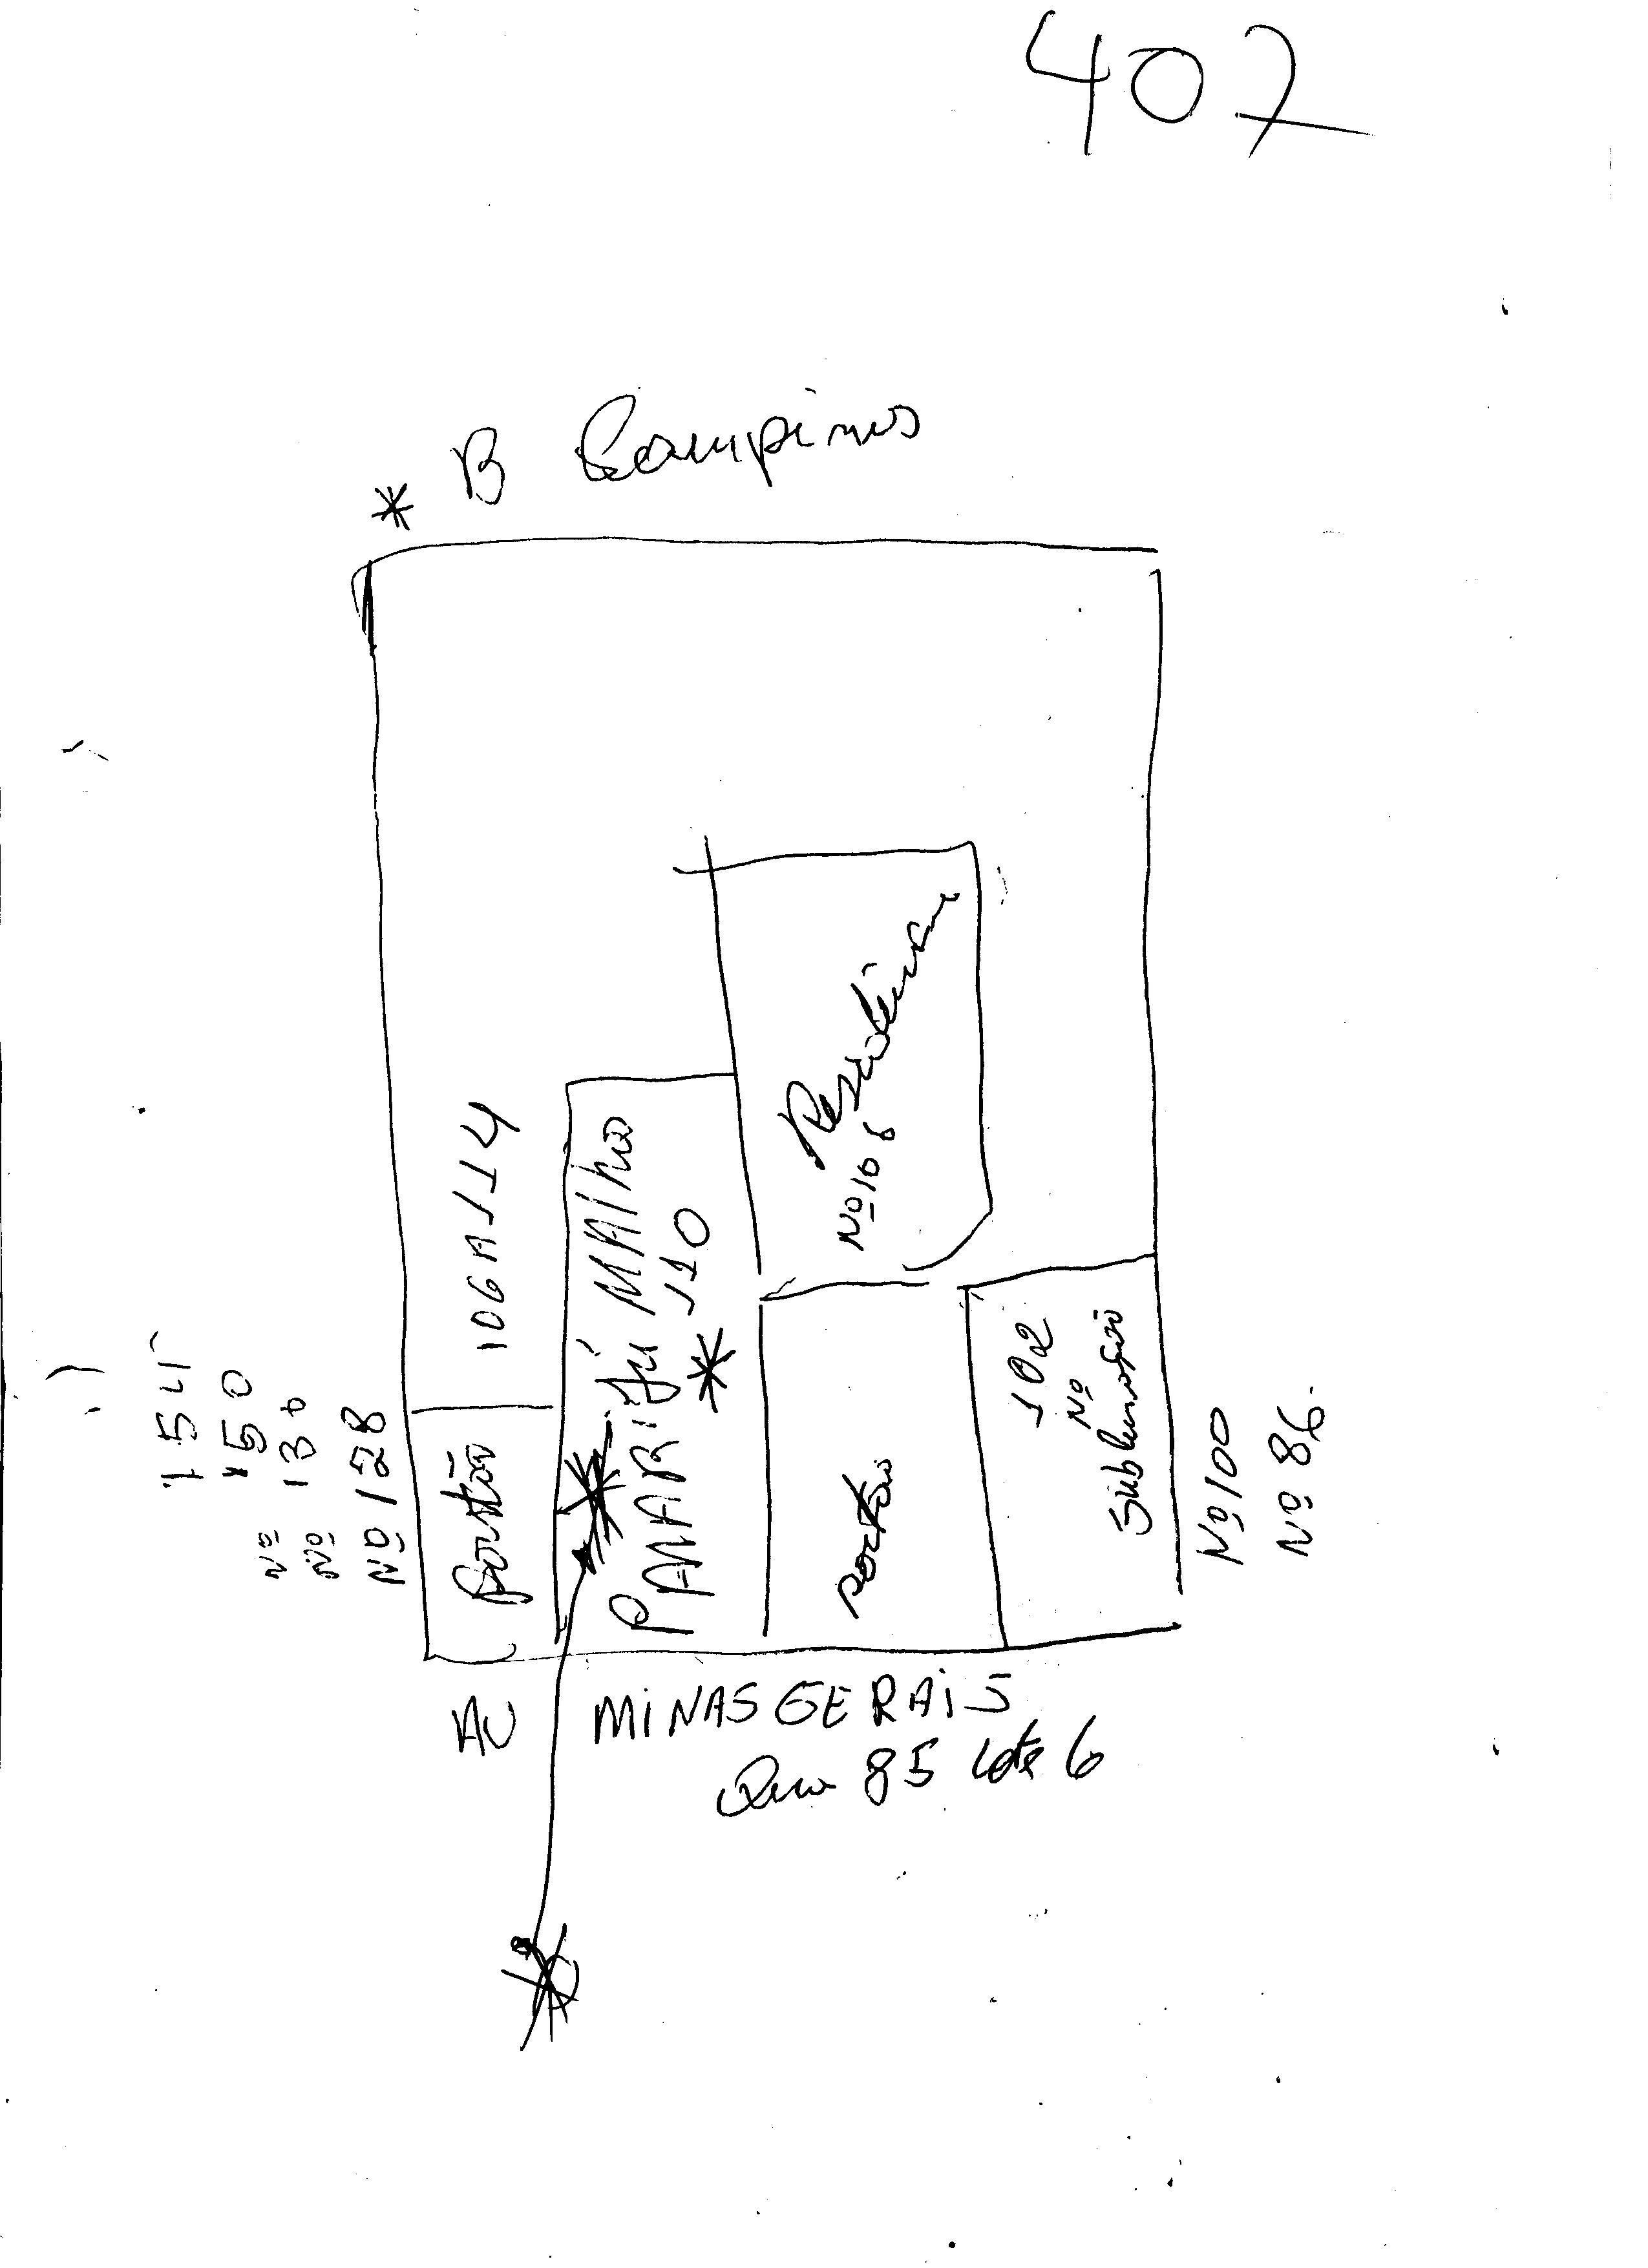 407
* B Campinas
154
150
Nº 130
Nº
Nº 128
Portão
106 A 114
MAlha
PAMARi
* 110
Residência
Nº 106
portão
102
Nº
Sublimação
Nº 100
Nº 86.
AV MiNAS GERAiS
85 lote 6